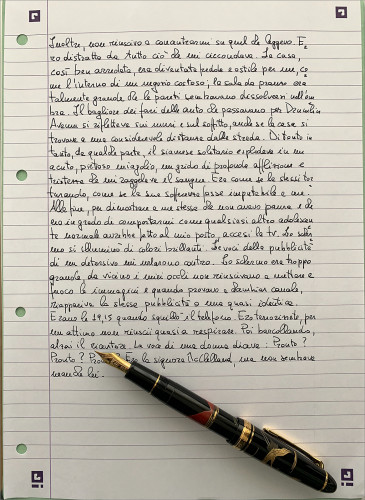 Inoltre, non riuscivo a concentrarmi su quel che leggevo. E-
ro distratto da tutto ciò che mi circondava. La casa,
così ben arredata, era diventata fredda e ostile per me, co-
me l'interno di un negozio costoso; la sala da pranzo era
talmente grande che le pareti sembravano dissolversi nell'om-
bra. Il bagliore dei fari delle auto che passavano per
Avenue si rifletteva sui muri e sul soffitto, anche se la casa si
trovava a una considerevole distanza dalla strada. Di tanto in
tanto, da qualche parte, il siamese solitario esplodeva in un
acuto, pietoso miagolio, un grido di profonda afflizione e
tristezza da mi raggelava il sangue. Era come se lo stessi tor-
turando, come se la sua sofferenza fosse imputabile a me.
Alla fine, per dimostrare a me stesso che non avevo paura e che
ero in grado di comportarmi come qualsiasi altro adolescen-
te normale avrebbe fatto al mio posto, accesi la tv. Lo scher-
mo si illuminò di colori brillanti. Le voci della pubblicità
di un detersivo mi urlarono contro. Lo schermo era troppo
grande, da vicino i miei occhi non riuscivano a mettere a
fuoco le immagini e quando provavo a cambiare canale,
riappariva la stessa pubblicità o una quasi identica.
Erano le 19,15 quando squillò il telefono. Ero terrorizzato, per
un attimo non riuscii quasi a respirare. Poi barcollando,
alzai il ricevitore. La voce di una donna diceva: Pronto?
Pronto? Pronto? Era la signora McClelland, ma non sembrava
neanche lei.